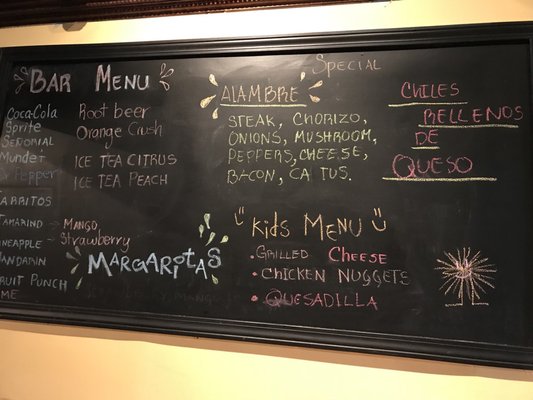 BAR MENU
Coca-Cola
Sprite
SEÑORIAL
Mundet
Dr Pepper
Root beer
Orange Crush
ICE TEA CITRUS
ICE TEA PEACH
MANGO
Strawberry
MANDARIN
MARGARITAS
Special
ALAMBRE
STEAK, CHORIZO,
ONIONS, MUSHROOM,
PEPPERS, CHEESE,
BACON,
CHILES
RELLENOS
DE
QUESO
Kids MENU
• GRILLED CHEESE
• CHICKEN NUGGETS
• QUESADILLA